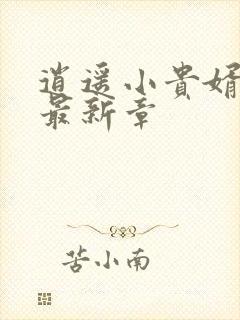 逍遥小贵婿
最新章
苦小南